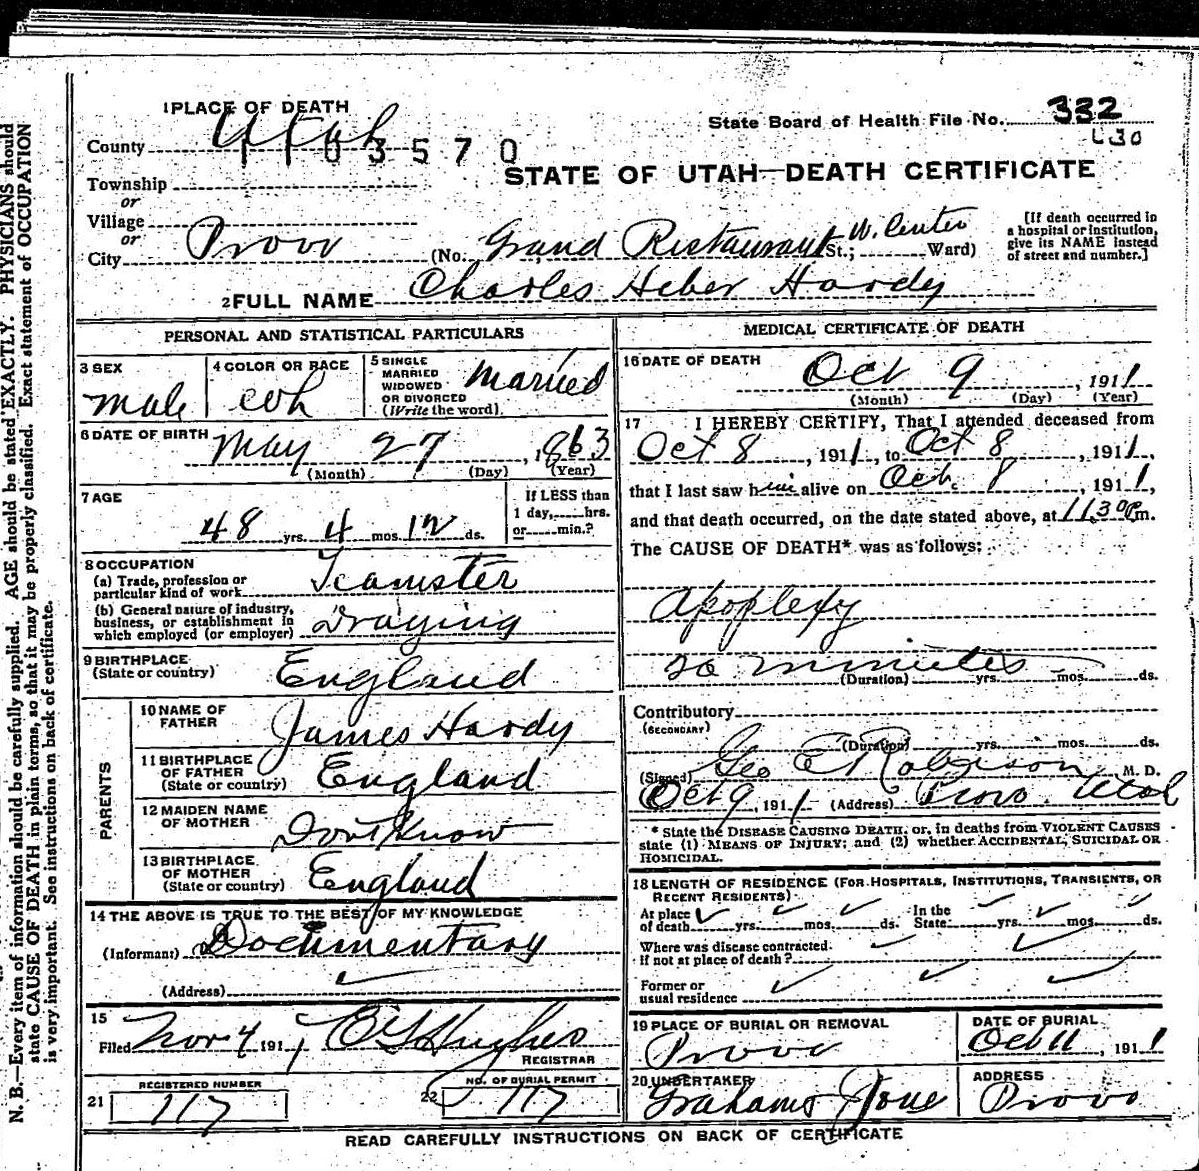 1 PLACE OF DEATH
State Board of Health File No. 332
County Utah
L30
1103570
STATE OF UTAH—DEATH CERTIFICATE
Township
or
Village
or
City Provo (No. Grand Ristaurant St.; W. Center Ward)
[If death occurred in
a hospital or institution,
give its NAME instead
of street and number.]
2 FULL NAME Charles Heber Hardy
PERSONAL AND STATISTICAL PARTICULARS
3 SEX
male
4 COLOR OR RACE
wh
5 SINGLE
MARRIED
WIDOWED
OR DIVORCED
(Write the word)
Married
6 DATE OF BIRTH May 27, 1863
(Month) (Day) (Year)
7 AGE
48 yrs. 4 mos. 12 ds.
If LESS than
1 day, hrs.
or min.?
8 OCCUPATION
(a) Trade, profession or
particular kind of work Teamster
(b) General nature of industry,
business, or establishment in
which employed (or employer) Draying
9 BIRTHPLACE
(State or country) England
PARENTS
10 NAME OF
FATHER James Hardy
11 BIRTHPLACE
OF FATHER
(State or country) England
12 MAIDEN NAME
OF MOTHER Dont Know
13 BIRTHPLACE
OF MOTHER
(State or country) England
14 THE ABOVE IS TRUE TO THE BEST OF MY KNOWLEDGE
(Informant) Documentary
(Address)
15
Filed Nov 4 191 1, E G Hughes
REGISTRAR
REGISTERED NUMBER
21 117
NO. OF BURIAL PERMIT
22 117
MEDICAL CERTIFICATE OF DEATH
16 DATE OF DEATH
Oct 9, 1911
(Month) (Day) (Year)
17 I HEREBY CERTIFY, That I attended deceased from
Oct 8, 1911, to Oct 8, 1911,
that I last saw him alive on Oct. 8, 1911,
and that death occurred, on the date stated above, at 11:30 Pm.
The CAUSE OF DEATH* was as follows:
Apoplexy
20 minutes
(Duration) yrs. mos. ds.
Contributory
(SECONDARY)
(Duration) yrs. mos. ds.
(Signed) Geo E Robison M. D.
Oct 9, 1911 (Address) Provo Utah
* State the DISEASE CAUSING DEATH, or, in deaths from VIOLENT CAUSES
state (1) MEANS OF INJURY; and (2) whether ACCIDENTAL, SUICIDAL OR
HOMICIDAL.
18 LENGTH OF RESIDENCE (FOR HOSPITALS, INSTITUTIONS, TRANSIENTS, OR
RECENT RESIDENTS)
At place
of death yrs. mos. ds.
In the
State yrs. mos. ds.
Where was disease contracted
if not at place of death?
Former or
usual residence
19 PLACE OF BURIAL OR REMOVAL
Provo
DATE OF BURIAL
Oct 11, 1911
20 UNDERTAKER
Grahams
ADDRESS
Provo
READ CAREFULLY INSTRUCTIONS ON BACK OF CERTIFICATE
N. B.—Every item of information should be carefully supplied. AGE should be stated EXACTLY. PHYSICIANS should
state CAUSE OF DEATH in plain terms, so that it may be properly classified. Exact statement of OCCUPATION
is very important. See instructions on back of certificate.